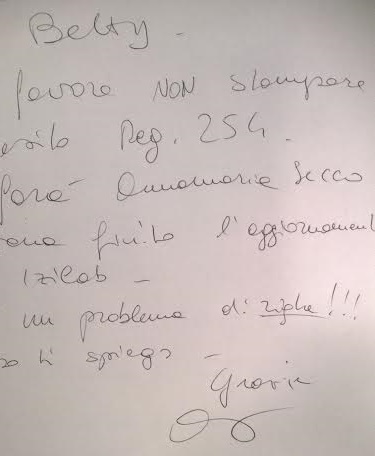 Betty -
favore NON stampare
esito Reg. 254.
farà Annamaria Secco
ena finito l'aggiornament
Izilab -
un problema di righe!!!
ti spiego -
Grazie